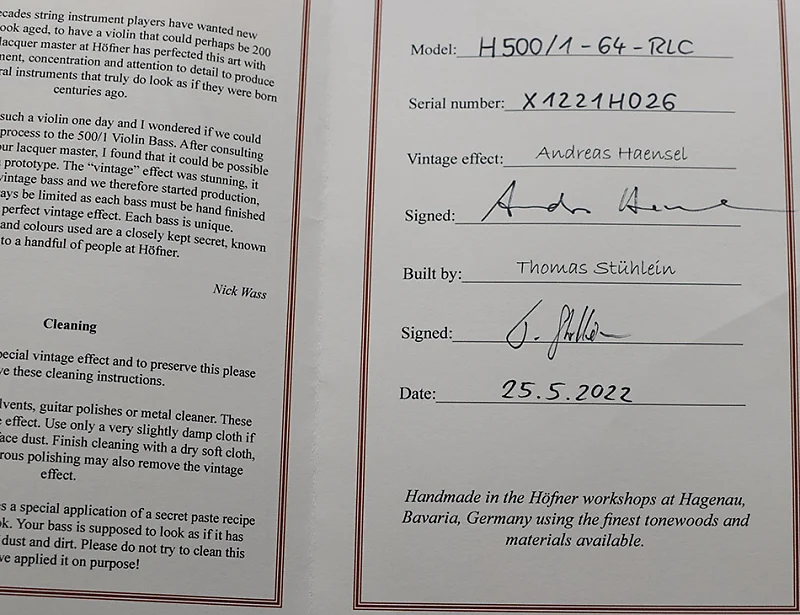 ecades string instrument players have wanted new
ook aged, to have a violin that could perhaps be 200
lacquer master at Höfner has perfected this art with
ment, concentration and attention to detail to produce
ral instruments that truly do look as if they were born
centuries ago.
such a violin one day and I wondered if we could
process to the 500/1 Violin Bass. After consulting
our lacquer master, I found that it could be possible
prototype. The “vintage” effect was stunning, it
vintage bass and we therefore started production,
ays be limited as each bass must be hand finished
perfect vintage effect. Each bass is unique.
and colours used are a closely kept secret, known
to a handful of people at Höfner.
Nick Wass
Cleaning
pecial vintage effect and to preserve this please
ve these cleaning instructions.
lvents, guitar polishes or metal cleaner. These
effect. Use only a very slightly damp cloth if
face dust. Finish cleaning with a dry soft cloth,
rous polishing may also remove the vintage
effect.
s a special application of a secret paste recipe
ok. Your bass is supposed to look as if it has
dust and dirt. Please do not try to clean this
ve applied it on purpose!
Model: H500/1-64-RLC
Serial number: X1221H026
Vintage effect: Andreas Haensel
Signed:
Built by: Thomas Stühlein
Signed:
Date: 25.5.2022
Handmade in the Höfner workshops at Hagenau,
Bavaria, Germany using the finest tonewoods and
materials available.